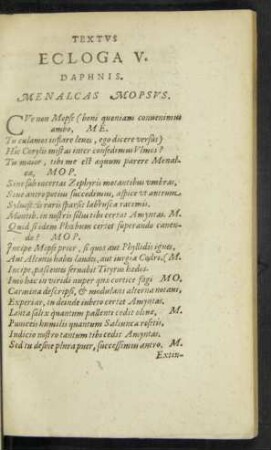 TEXTVS
ECLOGA V.
DAPHNIS.
MENALCAS MOPSVS.
CVr non Mopse (boni quoniam conuenimus
ambo, ME.
Tu calamos inflare leues, ego dicere versus)
Hic Corylis mistas inter consedimus Vlmos?
Tu maior, tibi me est æquum parere Menal-
ca, MOP.
Siue sub incertas Zephyris motantibus vmbras,
Siue antro potius succedimus, aspice vt antrum
Syluestris raris sparsit labrusca racemis.
Montib. in nostris solus tibi certat Amyntas. M.
Quid si idem Phœbum certet superando canen-
do? MOP.
Incipe Mopse prior, si quos aut Phyllidis ignes,
Aut Alconis habes laudes, aut iurgia Codri. (M.
Incipe, pascentes seruabit Tityrus hœdos.
Imo hæc in viridi nuper quæ cortice fagi MO.
Carmina descripsi, & modulans alterna notaui,
Experiar, tu deinde iubeto certet Amyntas.
Lenta salix quantum pallenti cedit oliuæ, M.
Puniceis humilis quantum Saliunca rosetis,
Iudicio nostro tantum tibi cedit Amyntas.
Sed tu desine plura puer, successimus antro. M.
Extin-